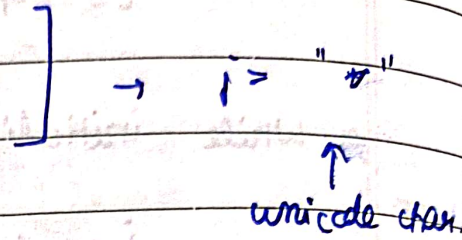 ] → i > " * "
↑
unicode char